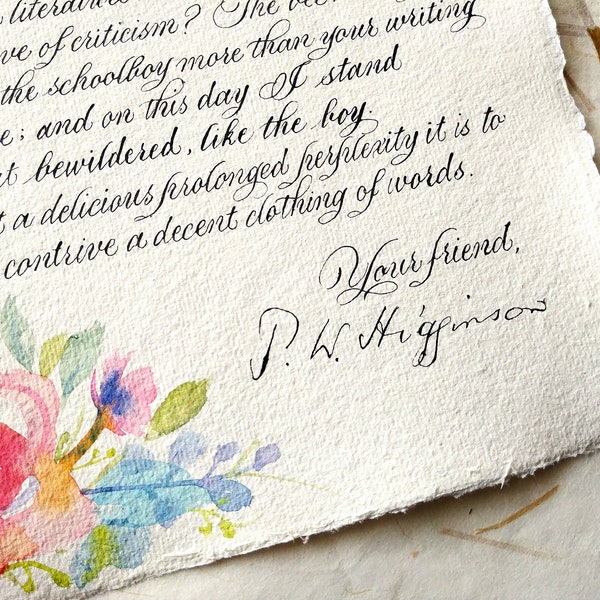 literature
ve of criticism? The
the schoolboy more than your writing
e; and on this day I stand
t bewildered, like the boy.
t a delicious prolonged perplexity it is to
contrive a decent clothing of words.
Your friend,
P. W. Higginson